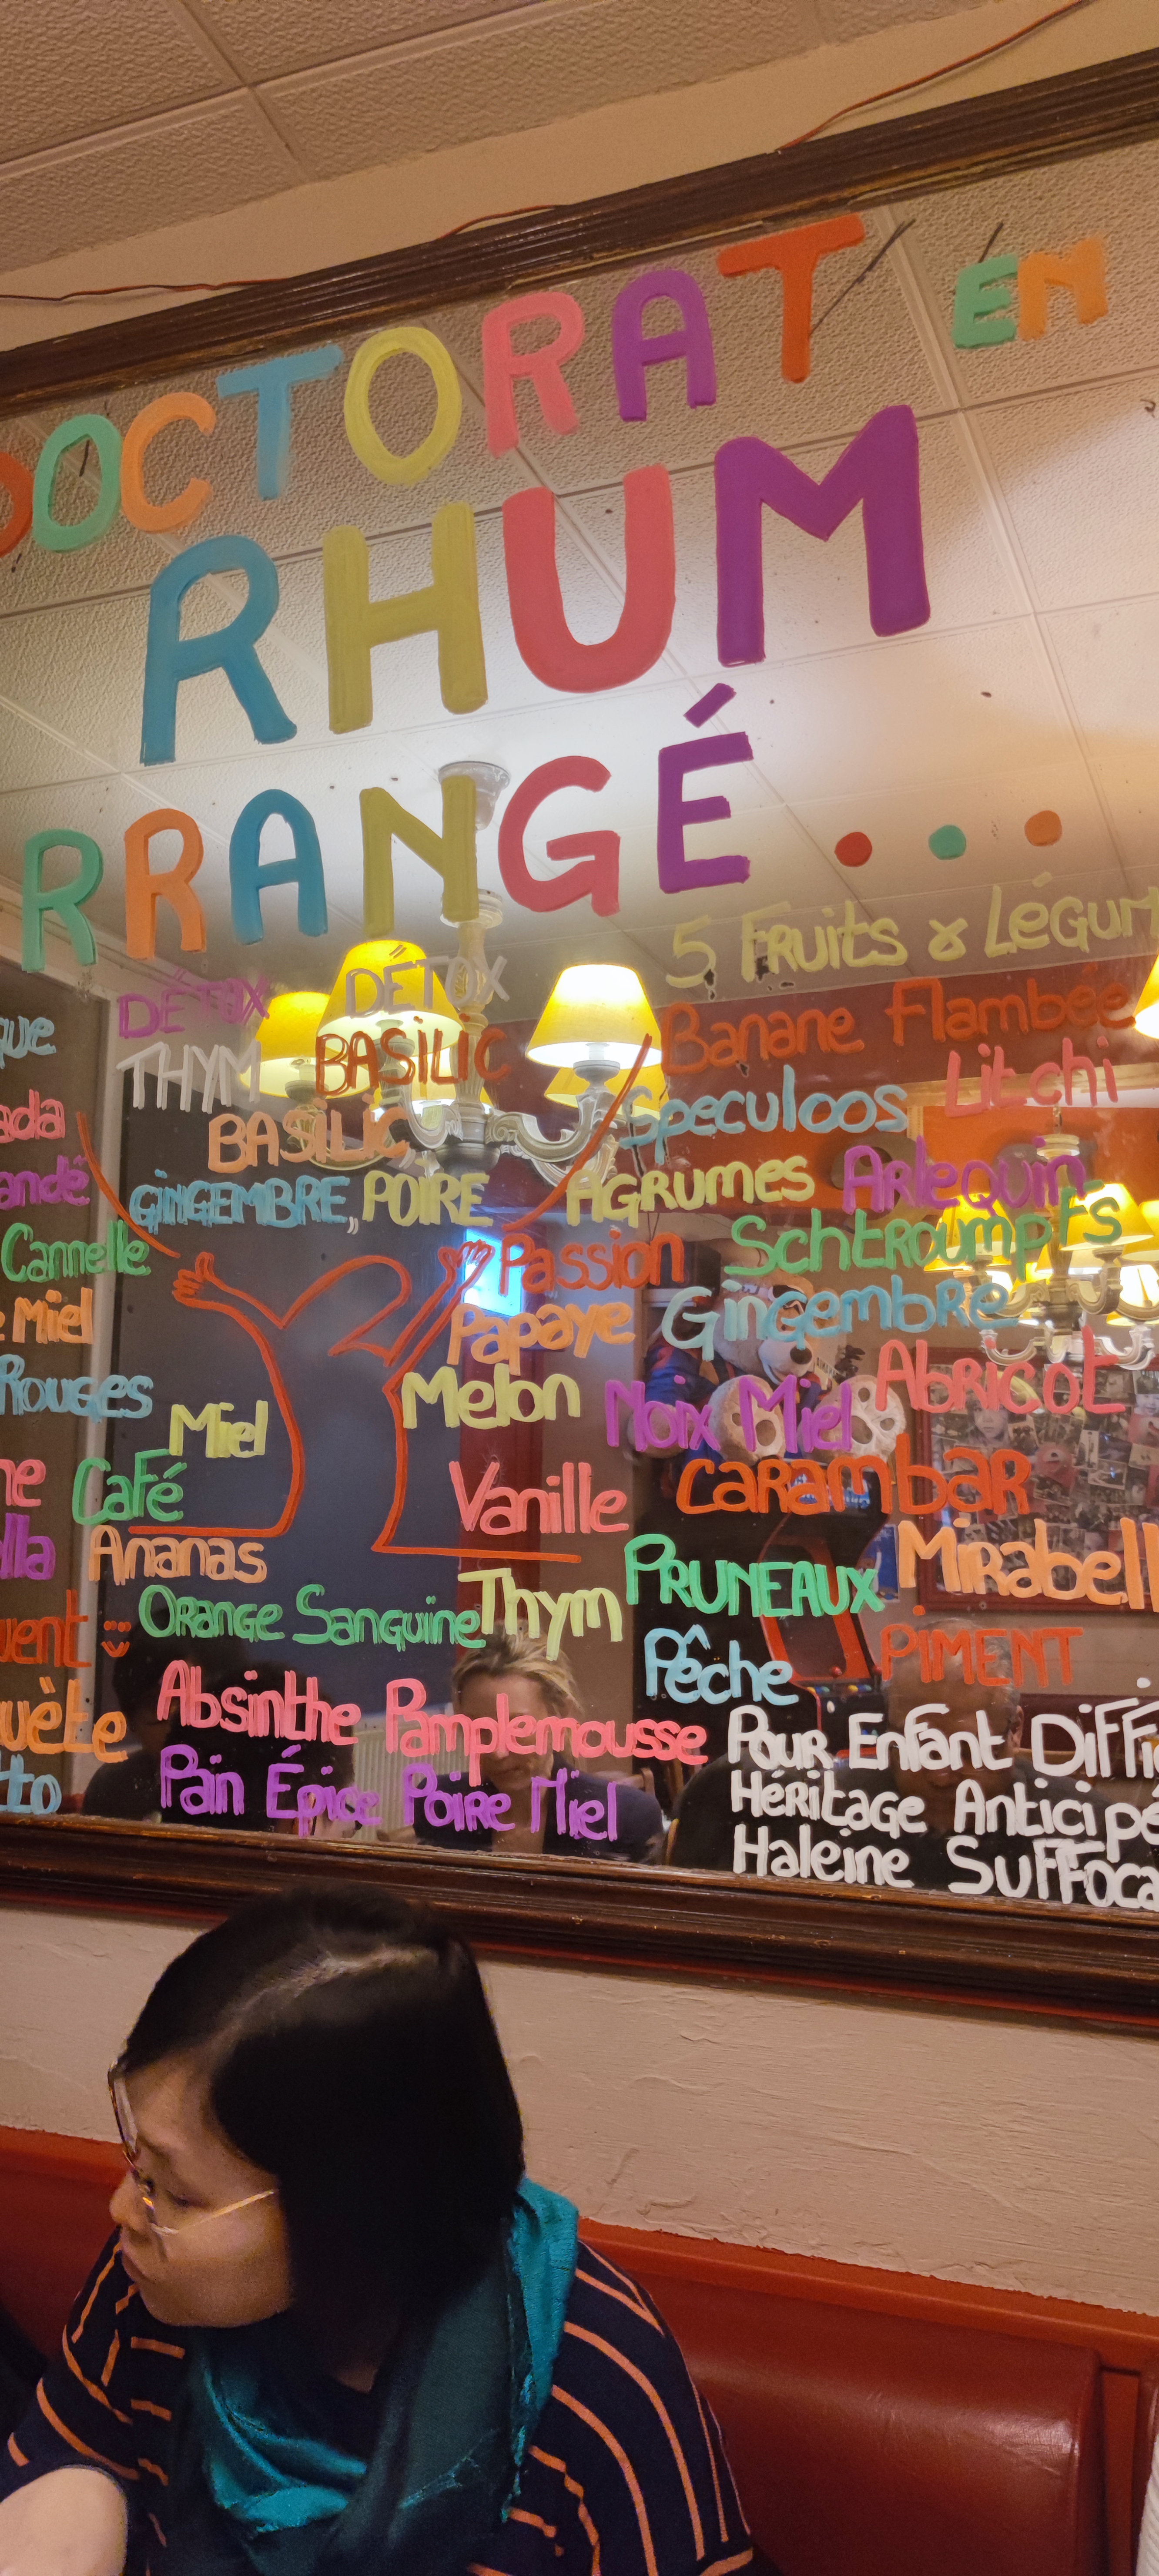 DOCTORAT EN
RHUM
RRANGÉ...
5 FRUITS & LÉGUM
DÉTOX DÉTOX
THYM BASILIC
BASILIC,
GINGEMBRE, POIRE
Banane Flambée
Speculoos Litchi
AGRUMES Arlequin
Passion Schtroumpfs
Papaye Gingembre
Melon Noix Miel Abricot
que
ada
andë
Cannelle
e Miel
Rouges Miel
ne Café Vanille Carambar
lla Ananas
PRUNEAUX Mirabell
uent Orange Sanguine Thym
Pêche PIMENT
uète Absinthe Pamplemousse
tto Pain Épice Poire Miel
Pour Enfant Diffi
Héritage Anticipé
Haleine Suffoca